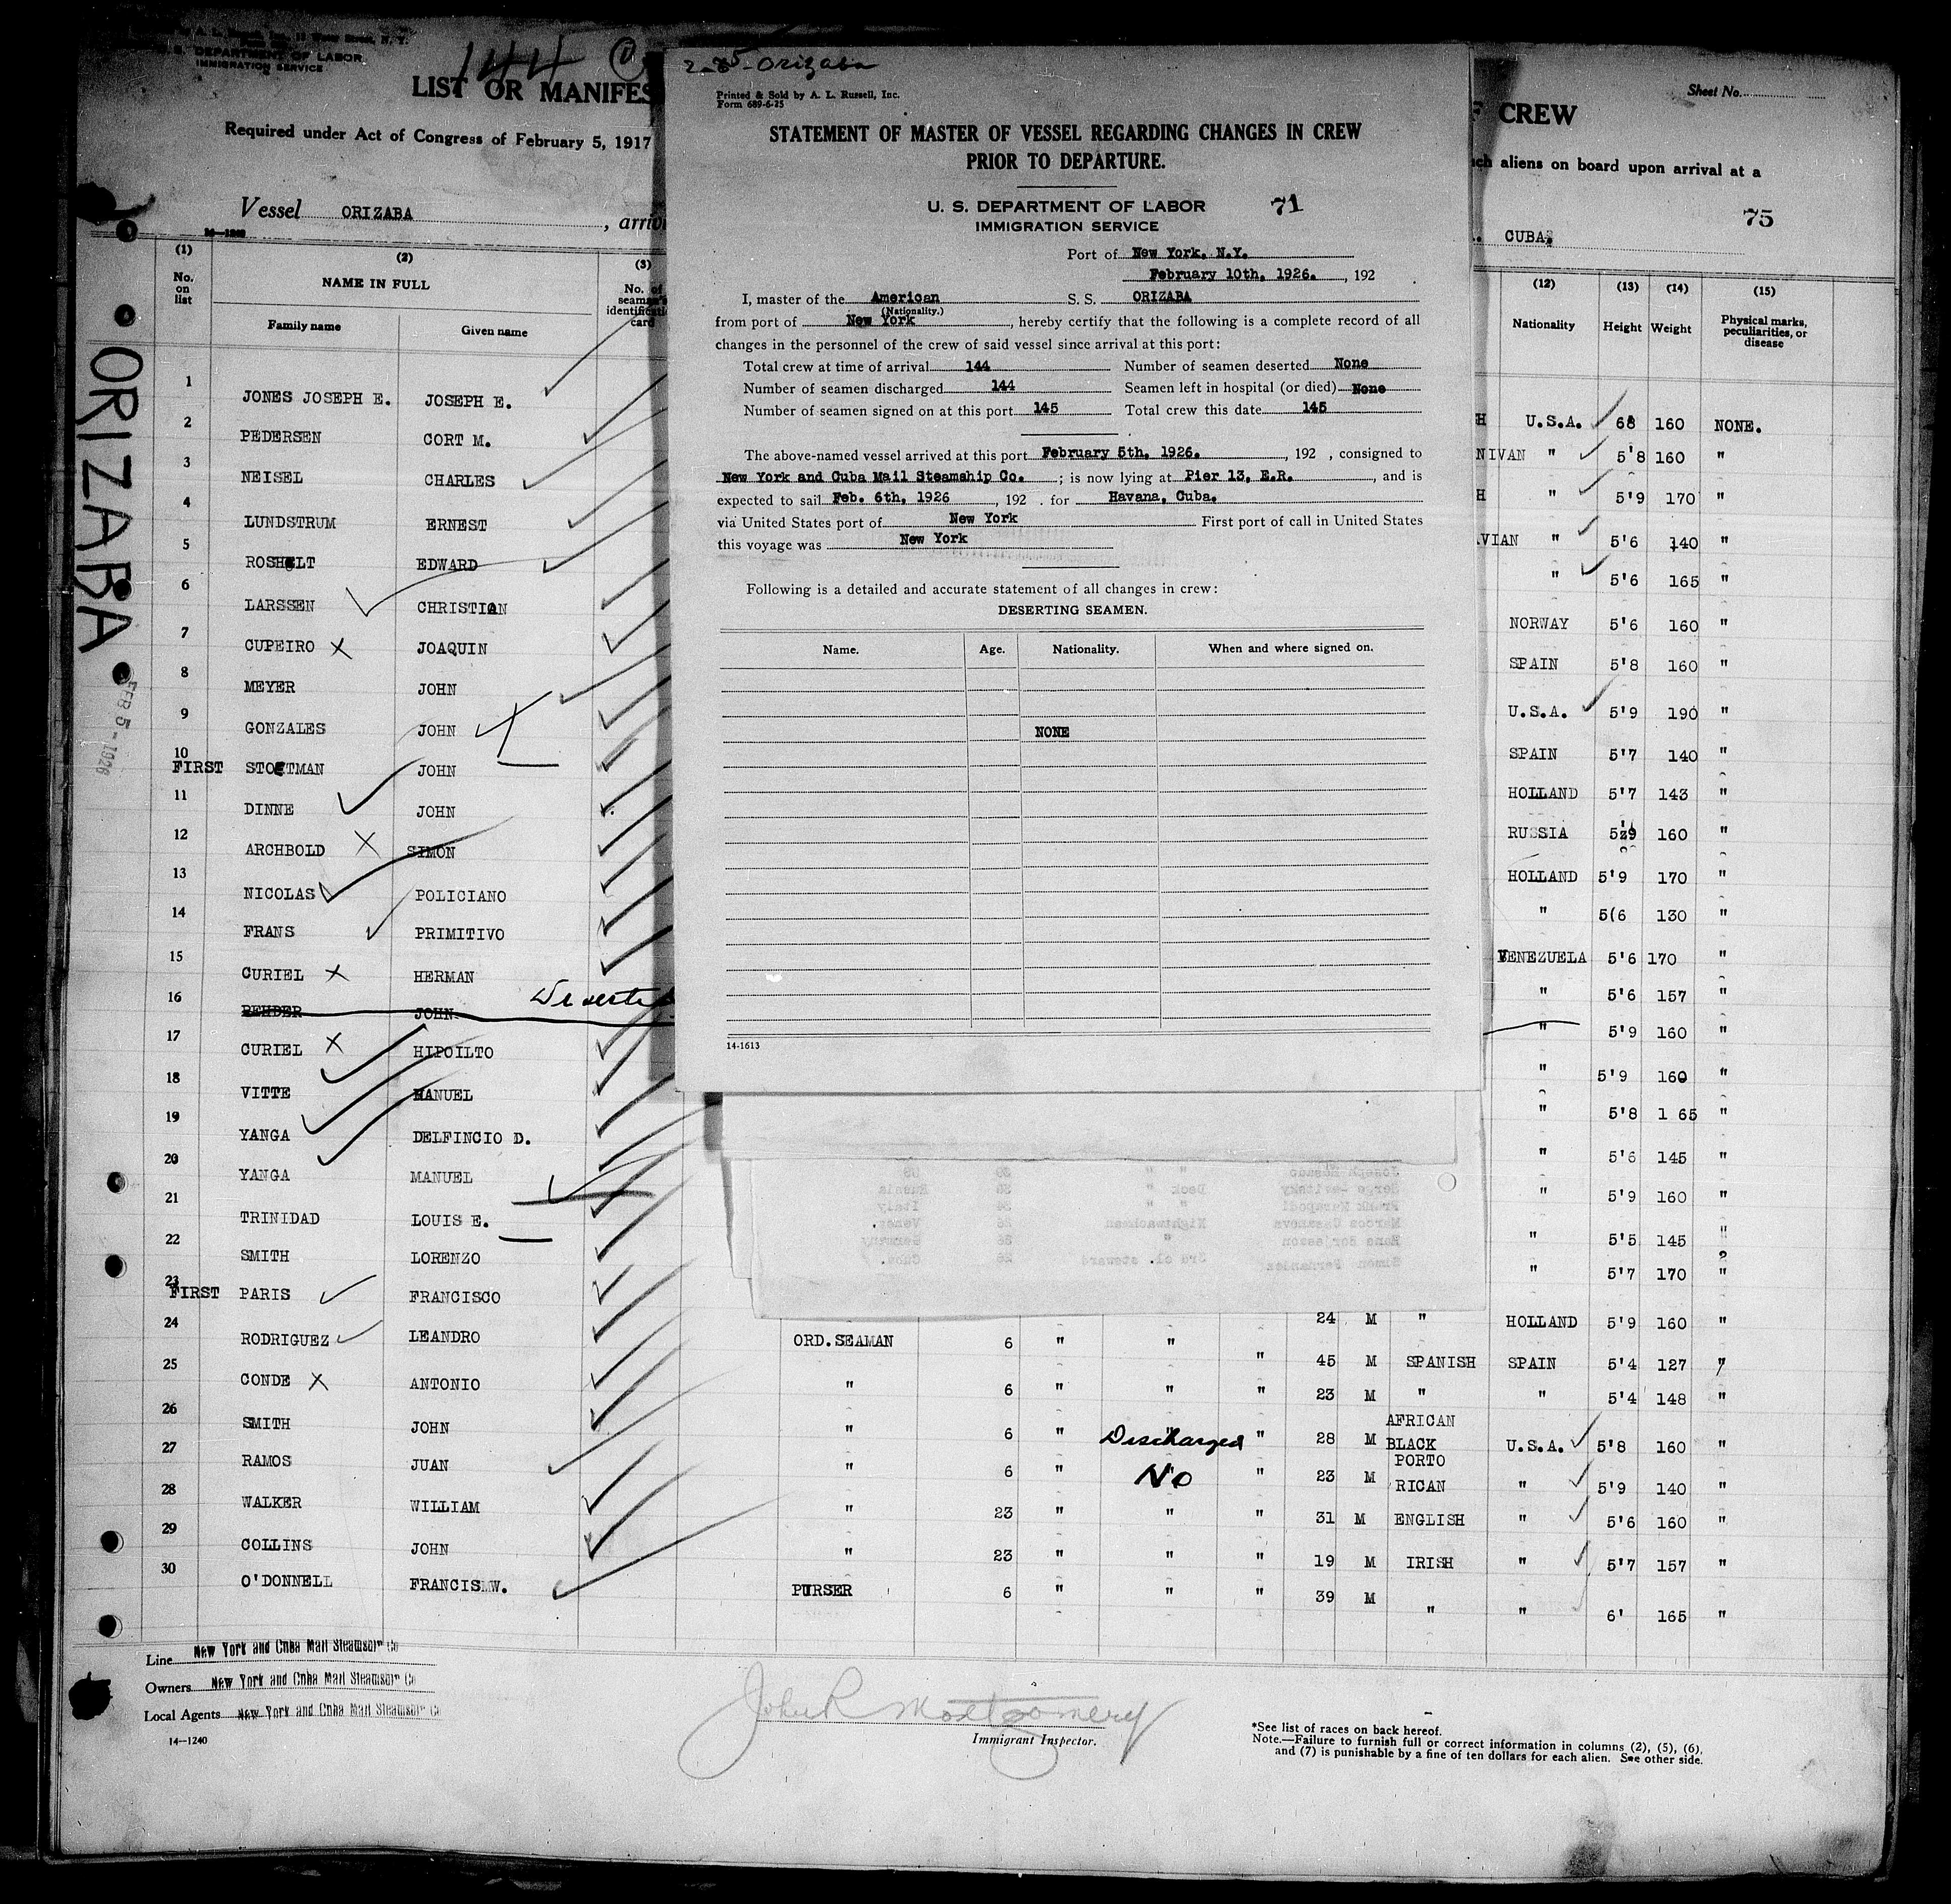 U.S. DEPARTMENT OF LABOR
IMMIGRATION SERVICE
144
LIST OR MANIFES
Required under Act of Congress of February 5, 1917
Vessel ORIZABA, arri
(1) No. on list
(2) NAME IN FULL
Family name Given name
(3) No. of seaman's identification card
ORIZABA
FEB 5 - 1926
1 JONES JOSEPH E. JOSEPH E.
2 PEDERSEN CORT M.
3 NEISEL CHARLES
4 LUNDSTRUM ERNEST
5 ROSHOLT EDWARD
6 LARSSEN CHRISTIAN
7 CUPEIRO JOAQUIN
8 MEYER JOHN
9 GONZALES JOHN
10 FIRST STOETMAN JOHN
11 DINNE JOHN
12 ARCHBOLD SIMON
13 NICOLAS POLICIANO
14 FRANS PRIMITIVO
15 CURIEL HERMAN
16 REHDER JOHN Deserted
17 CURIEL HIPOILTO
18 VITTE MANUEL
19 YANGA DELFINCIO D.
20 YANGA MANUEL
21 TRINIDAD LOUIS E.
22 SMITH LORENZO
23 FIRST PARIS FRANCISCO
24 RODRIGUEZ LEANDRO
25 CONDE ANTONIO
26 SMITH JOHN
27 RAMOS JUAN
28 WALKER WILLIAM
29 COLLINS JOHN
30 O'DONNELL FRANCIS W.
2-5- Orizaba
Printed & Sold by A. L. Russell, Inc.
Form 689-6-25
STATEMENT OF MASTER OF VESSEL REGARDING CHANGES IN CREW
PRIOR TO DEPARTURE.
U. S. DEPARTMENT OF LABOR 71
IMMIGRATION SERVICE
Port of New York, N.Y.
February 10th, 1926. , 192
I, master of the American S. S. ORIZABA
(Nationality.)
from port of New York, hereby certify that the following is a complete record of all
changes in the personnel of the crew of said vessel since arrival at this port:
Total crew at time of arrival 144 Number of seamen deserted None
Number of seamen discharged 144 Seamen left in hospital (or died) None
Number of seamen signed on at this port 145 Total crew this date 145
The above-named vessel arrived at this port February 5th, 1926. , 192 , consigned to
New York and Cuba Mail Steamship Co. ; is now lying at Pier 13, E.R. , and is
expected to sail Feb. 6th, 1926 , 192 . for Havana, Cuba.
via United States port of New York First port of call in United States
this voyage was New York
Following is a detailed and accurate statement of all changes in crew:
DESERTING SEAMEN.
Name. Age. Nationality. When and where signed on.
NONE
14-1613
Sheet No.
F CREW
ch aliens on board upon arrival at a
75
CUBA
(12) Nationality
(13) Height
(14) Weight
(15) Physical marks, peculiarities, or disease
H U.S.A. 68 160 NONE.
NIVAN " 5'8 160 "
H " 5'9 170 "
VIAN " 5'6 140 "
" 5'6 165 "
NORWAY 5'6 160 "
SPAIN 5'8 160 "
U.S.A. 5'9 190 "
SPAIN 5'7 140 "
HOLLAND 5'7 143 "
RUSSIA 5'9 160 "
HOLLAND 5'9 170 "
" 5(6 130 "
VENEZUELA 5'6 170 "
" 5'6 157 "
" 5'9 160 "
" 5'9 160 "
" 5'8 1 65 "
" 5'6 145 "
" 5'9 160 "
" 5'5 145 "
" 5'7 170 "
24 M " HOLLAND 5'9 160 "
ORD.SEAMAN 6 " " " 45 M SPANISH SPAIN 5'4 127 "
" 6 " " " 23 M " " 5'4 148 "
" 6 " Discharged " 28 M AFRICAN BLACK U.S.A. 5'8 160 "
" 6 " No " 23 M PORTO RICAN " 5'9 140 "
" 23 " " " 31 M ENGLISH " 5'6 160 "
" 23 " " " 19 M IRISH " 5'7 157 "
PURSER 6 " " " 39 M " " 6' 165 "
Line New York and Cuba Mail Steamship Co
Owners New York and Cuba Mail Steamship Co
Local Agents New York and Cuba Mail Steamship Co
14-1240
John R Montgomery
Immigrant Inspector.
*See list of races on back hereof.
Note.—Failure to furnish full or correct information in columns (2), (5), (6),
and (7) is punishable by a fine of ten dollars for each alien. See other side.